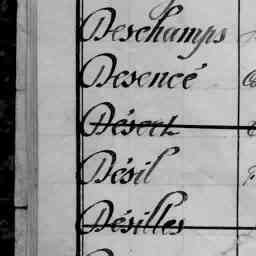 Deschamps
Desencé
Désert
Désil
Désilles